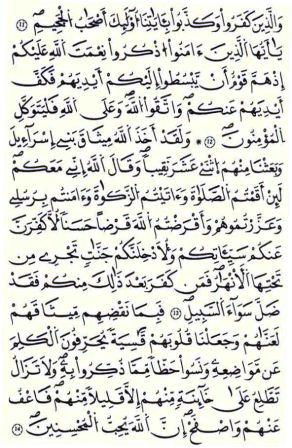 وَالَّذِينَ كَفَرُواْ وَكَذَّبُواْ بِـَٔايَٰتِنَآ أُوْلَٰٓئِكَ أَصْحَٰبُ الْجَحِيمِ ١١
يَٰٓأَيُّهَا الَّذِينَ ءَامَنُواْ اذْكُرُواْ نِعْمَتَ اللَّهِ عَلَيْكُمْ
إِذْ هَمَّ قَوْمٌ أَنْ يَّبْسُطُواْ إِلَيْكُمْ أَيْدِيَهُمْ فَكَفَّ
أَيْدِيَهُمْ عَنكُمْ وَاتَّقُواْ اللَّهَ وَعَلَى اللَّهِ فَلْيَتَوَكَّلِ
الْمُؤْمِنُونَ ١٢ * وَلَقَدْ أَخَذَ اللَّهُ مِيثَٰقَ بَنِي إِسْرَآءِيلَ
وَبَعَثْنَا مِنْهُمُ اثْنَيْ عَشَرَ نَقِيبًا وَقَالَ اللَّهُ إِنِّي مَعَكُمْ
لَئِنْ أَقَمْتُمُ الصَّلَوٰةَ وَءَاتَيْتُمُ الزَّكَوٰةَ وَءَامَنتُم بِرُسُلِي
وَعَزَّرْتُمُوهُمْ وَأَقْرَضْتُمُ اللَّهَ قَرْضًا حَسَنًا لَّأُكَفِّرَنَّ
عَنكُمْ سَيِّـَٔاتِكُمْ وَلَأُدْخِلَنَّكُمْ جَنَّٰتٍ تَجْرِي مِن
تَحْتِهَا الْأَنْهَٰرُ فَمَن كَفَرَ بَعْدَ ذَٰلِكَ مِنكُمْ فَقَدْ
ضَلَّ سَوَآءَ السَّبِيلِ ١٣ فَبِمَا نَقْضِهِم مِّيثَٰقَهُمْ
لَعَنَّٰهُمْ وَجَعَلْنَا قُلُوبَهُمْ قَٰسِيَةً يُحَرِّفُونَ الْكَلِمَ
عَن مَّوَاضِعِهِ وَنَسُواْ حَظًّا مِّمَّا ذُكِّرُواْ بِهِ وَلَا تَزَالُ
تَطَّلِعُ عَلَىٰ خَآئِنَةٍ مِّنْهُمْ إِلَّا قَلِيلًا مِّنْهُمْ فَاعْفُ
عَنْهُمْ وَاصْفَحْ إِنَّ اللَّهَ يُحِبُّ الْمُحْسِنِينَ ١٤